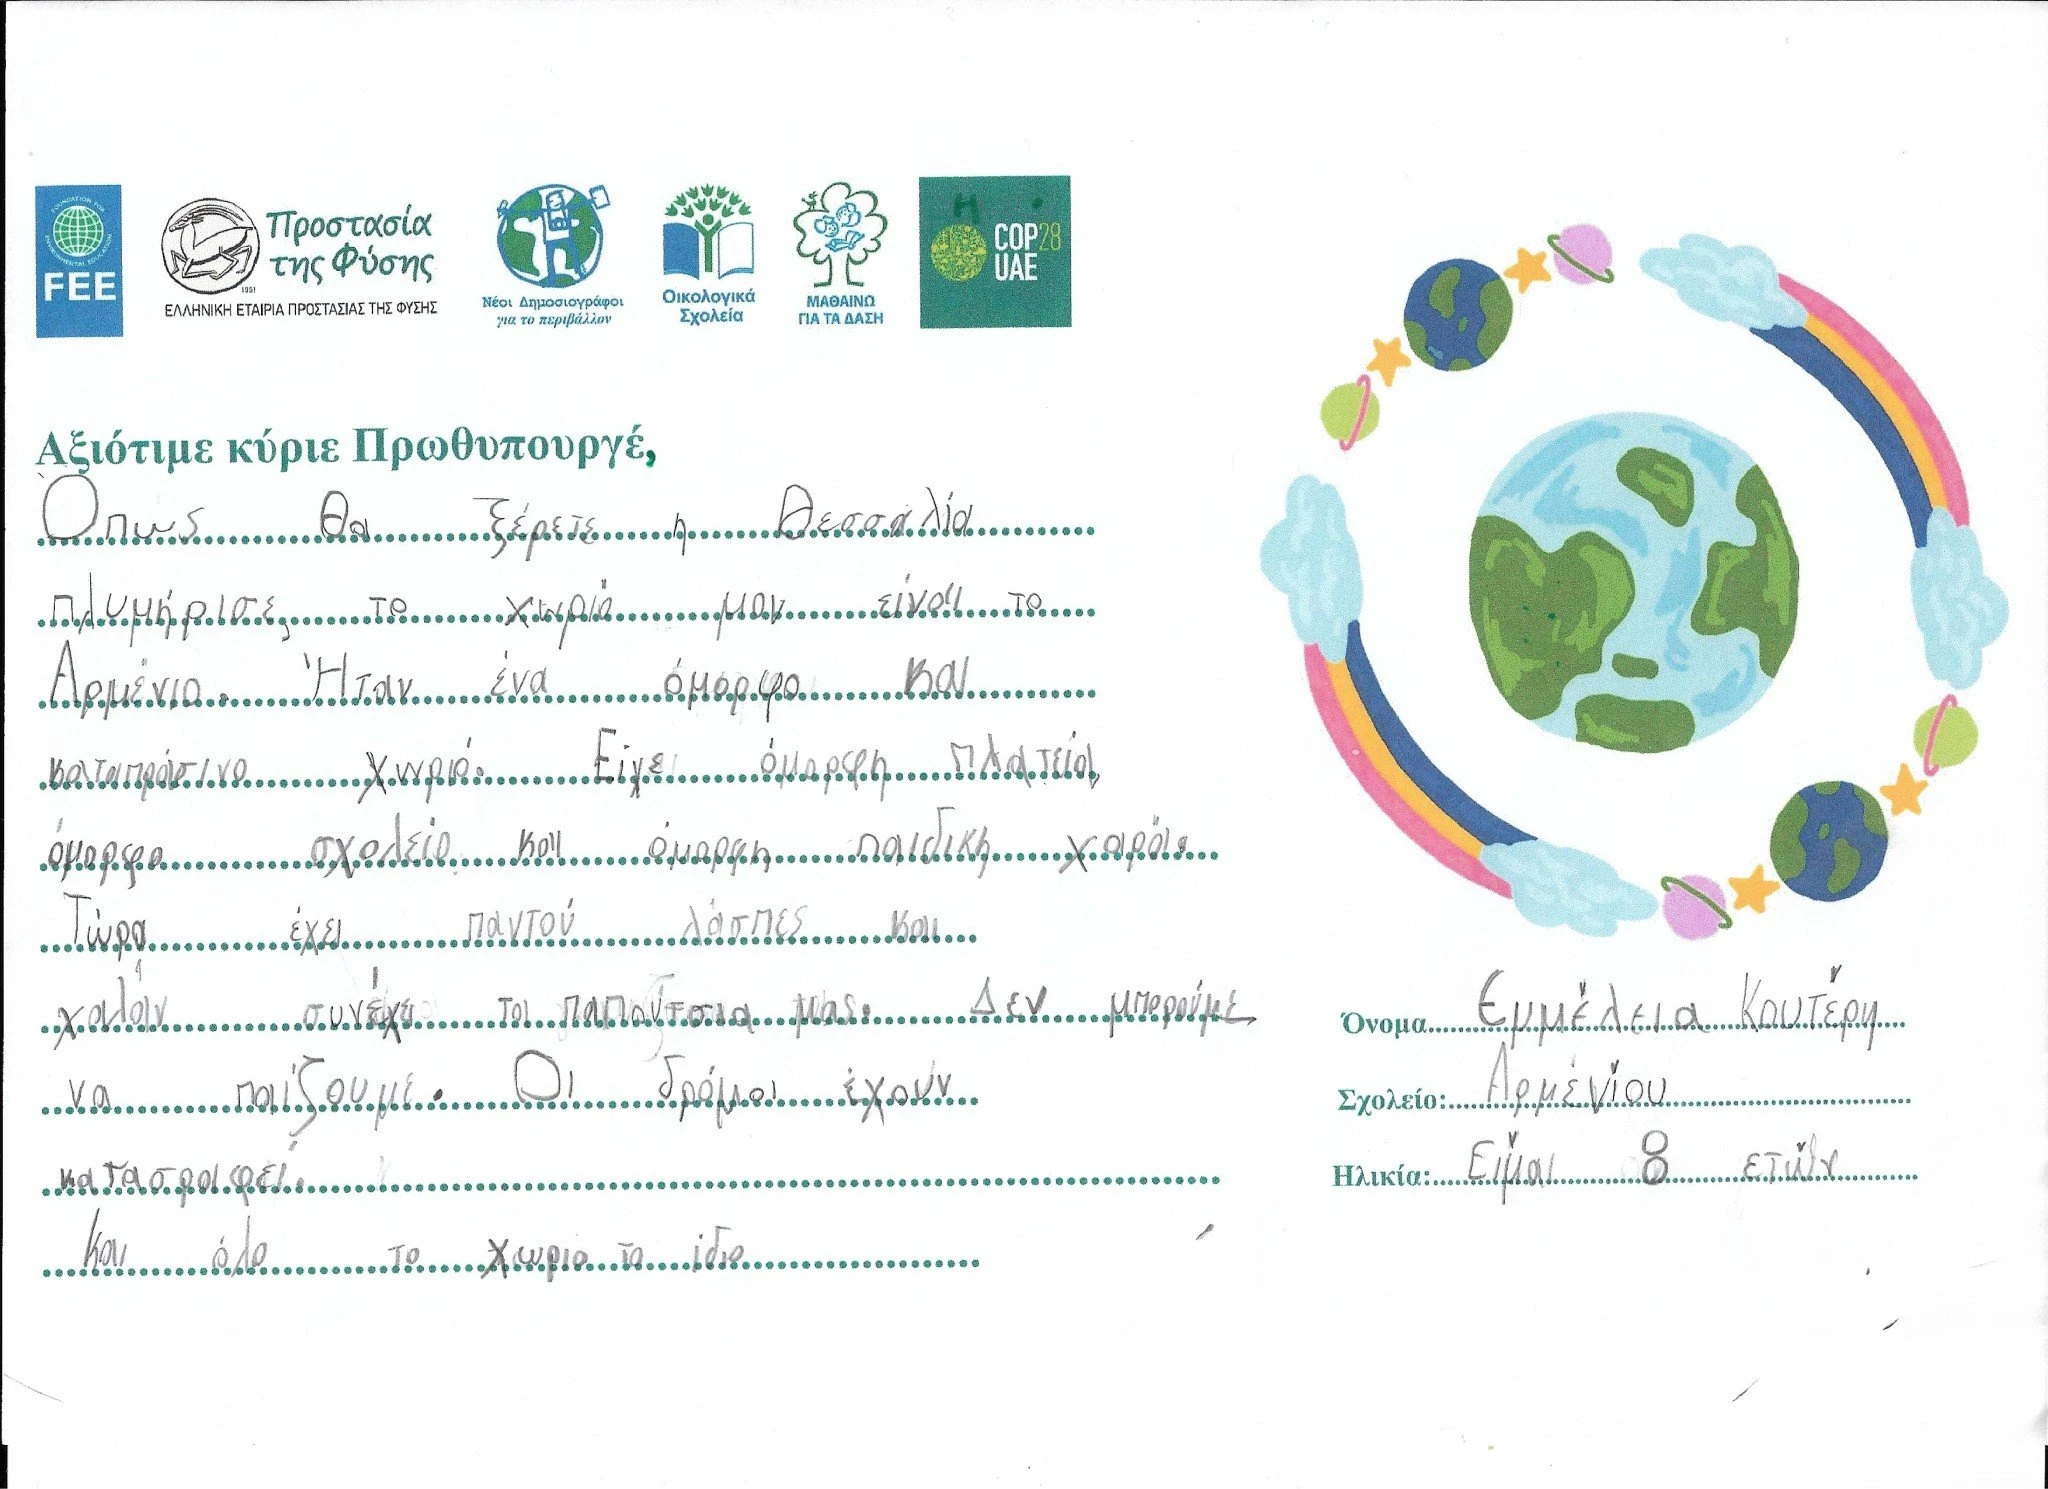 FOUNDATION FOR ENVIRONMENTAL EDUCATION
FEE
Προστασία
της Φύσης
1951
ΕΛΛΗΝΙΚΗ ΕΤΑΙΡΙΑ ΠΡΟΣΤΑΣΙΑΣ ΤΗΣ ΦΥΣΗΣ
Νέοι Δημοσιογράφοι
για το περιβάλλον
Οικολογικά
Σχολεία
ΜΑΘΑΙΝΩ
ΓΙΑ ΤΑ ΔΑΣΗ
COP28
UAE
Αξιότιμε κύριε Πρωθυπουργέ,
Όπως θα ξέρετε η Θεσσαλία
πλυμήρισε, το χωριό μου είναι το
Αρμένιο. Ήταν ένα όμορφο και
καταπράσινο χωριό. Είχε όμορφη πλατεία,
όμορφο σχολείο και όμορφη παιδική χαρά.
Τώρα έχει παντού λάσπες και
χαλάν συνέχει τα παπούτσια μας. Δεν μπορούμε
να παίζουμε. Οι δρόμοι έχουν
κατασραφεί.
Και όλο το χωριο το ίδιο
Όνομα Εμμέλεια Κουτέρη
Σχολείο: Αρμένίου
Ηλικία: Είμαι 8 ετών